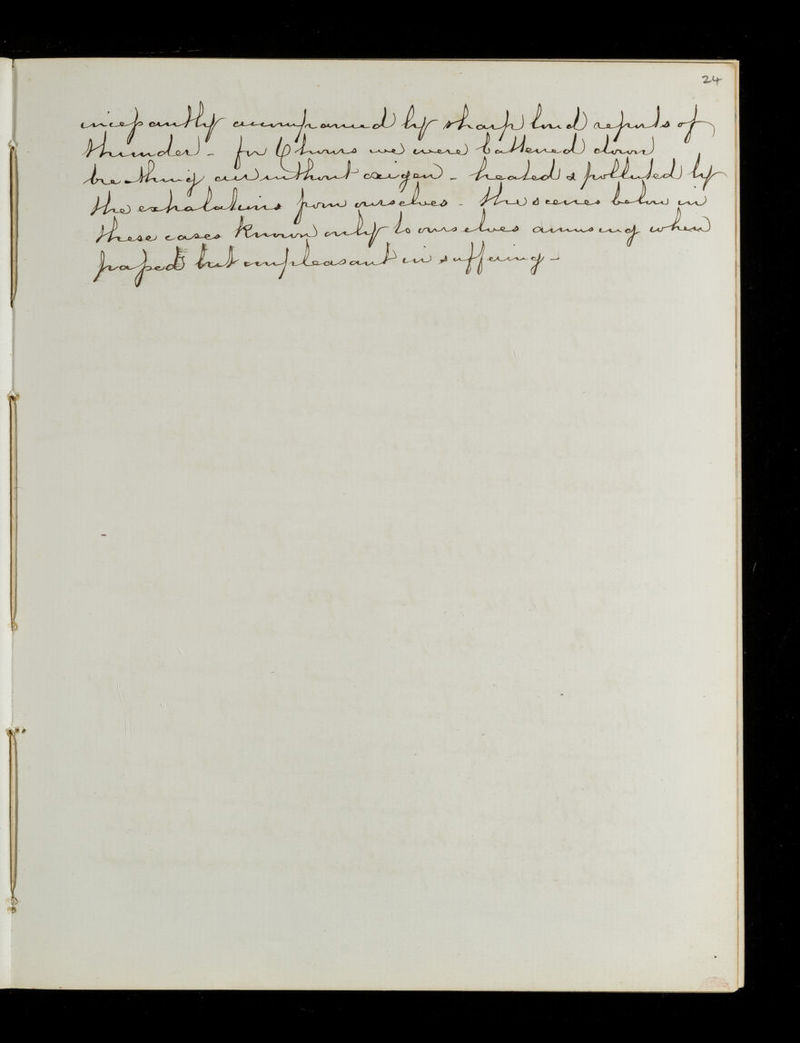 24
incessantly accompanied by sharp loud reports of
thunder - for 6 hours we were battened down
breathing air without oxigen - heated & polluted by
the exhalations from ourselves - the scenes below in
these cases known only to ourselves amusing when
passed but unpleasant in suffering -